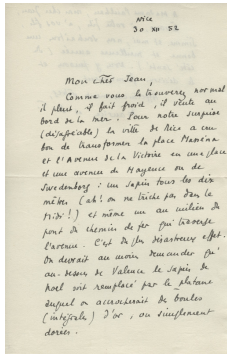 Nice
30 XII 52
Mon cher Jean,
Comme vous le trouverez normal
il pleut, il fait froid, il vente au
bord de la mer. Pour notre surprise
(désagréable) la ville de Nice a cru
bon de transformer la place Masséna
et l'Avenue de la Victoire en une place
et une avenue de Mayence ou de
Swedenborg : un sapin tous les dix
mètres (ah! on ne triche pas dans le
) et même un au milieu du
pont de chemin de fer qui traverse
l'avenue. C'est du plus désastreux effet.
On devrait au moins demander qu'
au-dessus de Valence le sapin de
Noël soit remplacé par le platane
auquel on accrocherait des boules
(intégrale) d'or, ou simplement
dorées.